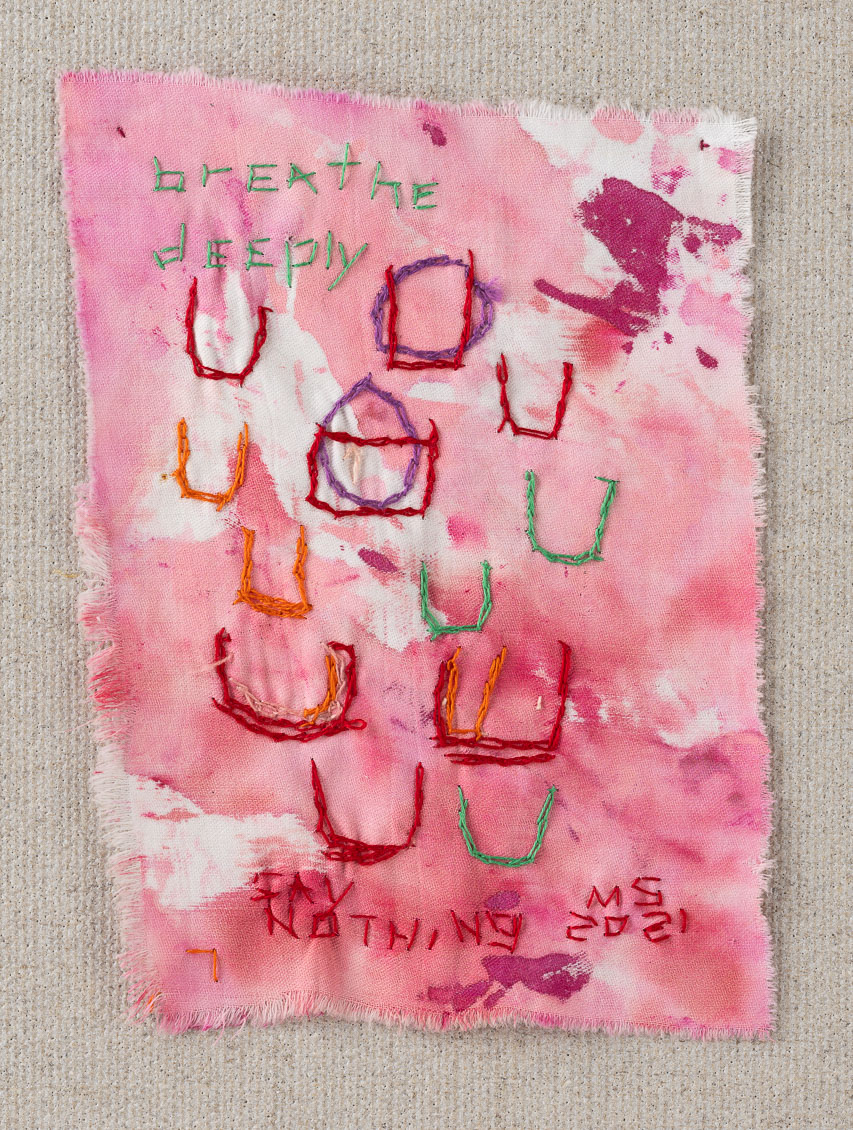 brEAthE
dEEply
SAY MS
NOTHiNg 2021